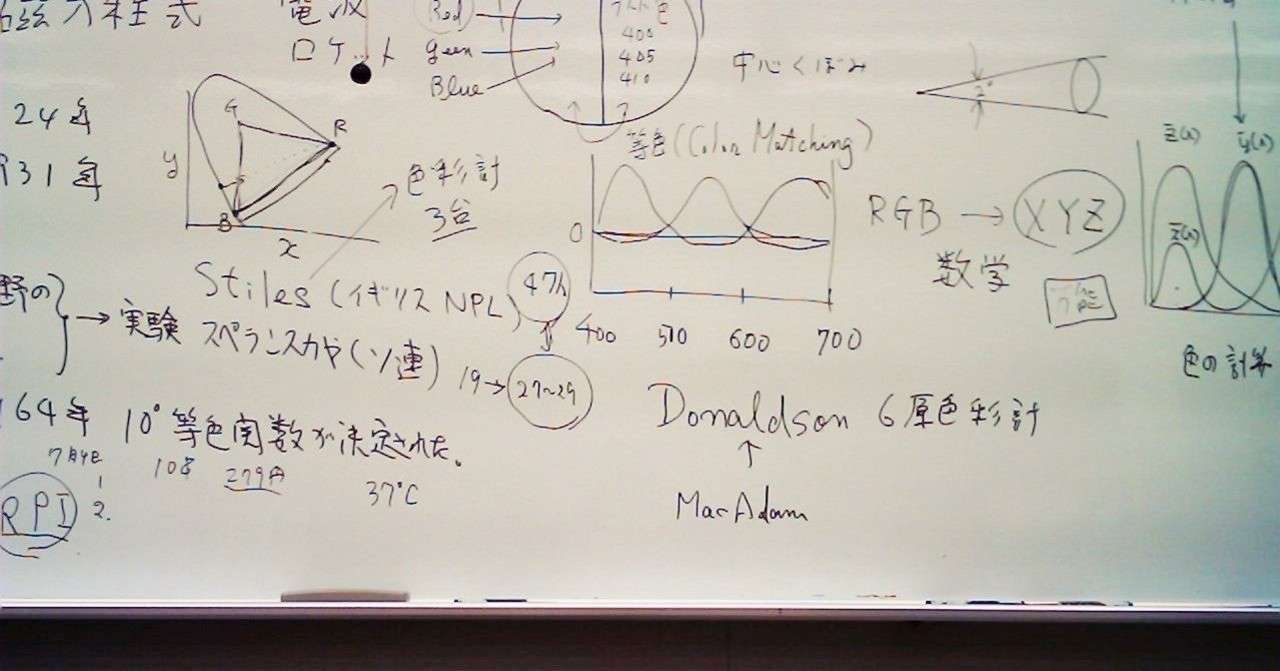 株式会社
電波
ロケット
Red
green
Blue
400
405
410
?
等色 (Color Matching)
中心くぼみ
2°
24年
931年
y
G
R
B
x
色彩計
3台
0
400
500
600
700
RGB → XYZ
数学
z̄(λ)
ȳ(λ)
色の計算
野の → 実験
Stiles (イギリス NPL)
47人
スペランスカヤ (ソ連)
19→ 27~29
Donaldson 6原色彩計
↑
MacAdam
64年 10° 等色関数が決定された。
37°C
RPI
1
2.